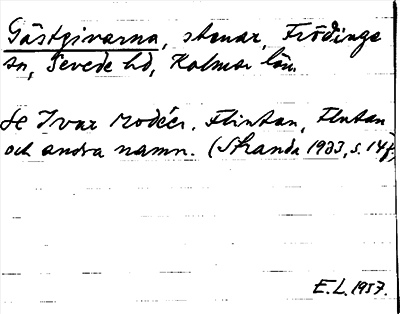 Gästgivarna, stenar, Frödinge
sn, Sevede hd, Kalmar län.
Se Ivar Modéer. Flintan, Flutan
och andra namn. (Stranda 1933, s. 14f)
E.L. 1957.